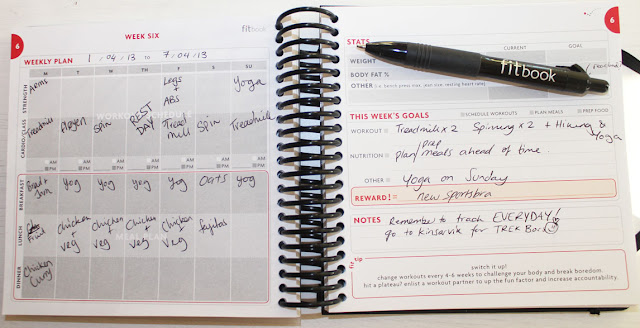 6
WEEK SIX
fitbook
WEEKLY PLAN 1/04/13 TO 7/04/13
M T W T F S SU
STRENGTH
Arms
Legs + ABS
Yoga
CARDIO/CLASS
Treadmill
Spin
REST DAY
Treadmill
Spin
Treadmill
AM PM AM PM AM PM AM PM AM PM AM PM AM PM
BREAKFAST
Bread + Jam
Yog
Yog
Yog
Yog
Oats
Yog
LUNCH
Fried
Chicken + veg
Chicken + veg
Chicken + veg
Chicken + veg
fajitas
DINNER
Chicken Curry
6
STATS
CURRENT GOAL
WEIGHT
BODY FAT %
OTHER (i.e. bench press max, jean size, resting heart rate)
fitbook
THIS WEEK'S GOALS SCHEDULE WORKOUTS PLAN MEALS PREP FOOD
WORKOUT = Treadmill x 2 Spinning x 2 + Hiking & Yoga
NUTRITION = plan/prep meals ahead of time.
OTHER = Yoga on Sunday
REWARD! = new sportsbra
NOTES Remember to track EVERYDAY!
go to kinsarvik for TREK Bars
fit tip
switch it up!
change workouts every 4-6 weeks to challenge your body and break boredom.
hit a plateau? enlist a workout partner to up the fun factor and increase accountability.